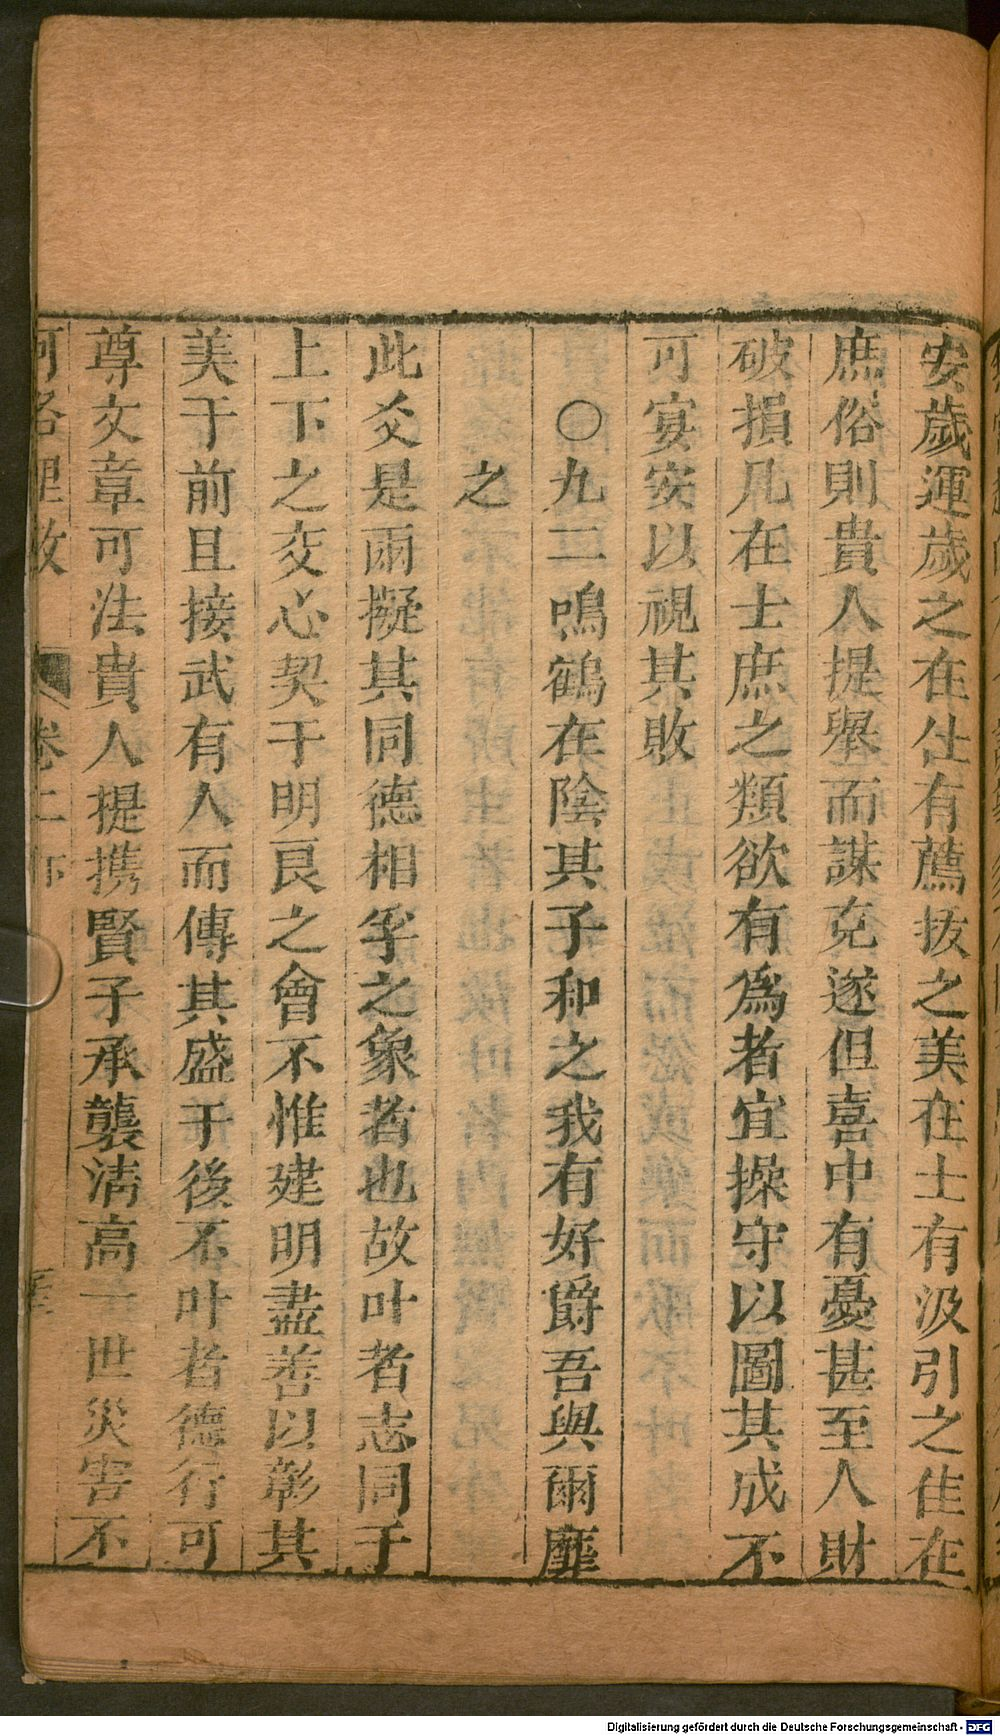 安歲運歲之在仕有薦拔之美在士有汲引之佳在
庶俗則貴人提舉而謀克遂但喜中有憂甚至人財
破損凡在士庶之類欲有爲者宜操守以圖其成不
可宴安以視其敗
○九二鳴鶴在陰其子和之我有好爵吾與爾靡
之
此爻是兩擬其同德相孚之象者也故叶者志同于
上下之交心契于明良之會不惟建明盡善以彰其
美于前且接武有人而傳其盛于後不叶者德行可
尊文章可法貴人提携賢子承襲清高一世災害不
河洛理數 卷二
Digitalisierung gefördert durch die Deutsche Forschungsgemeinschaft - DFG